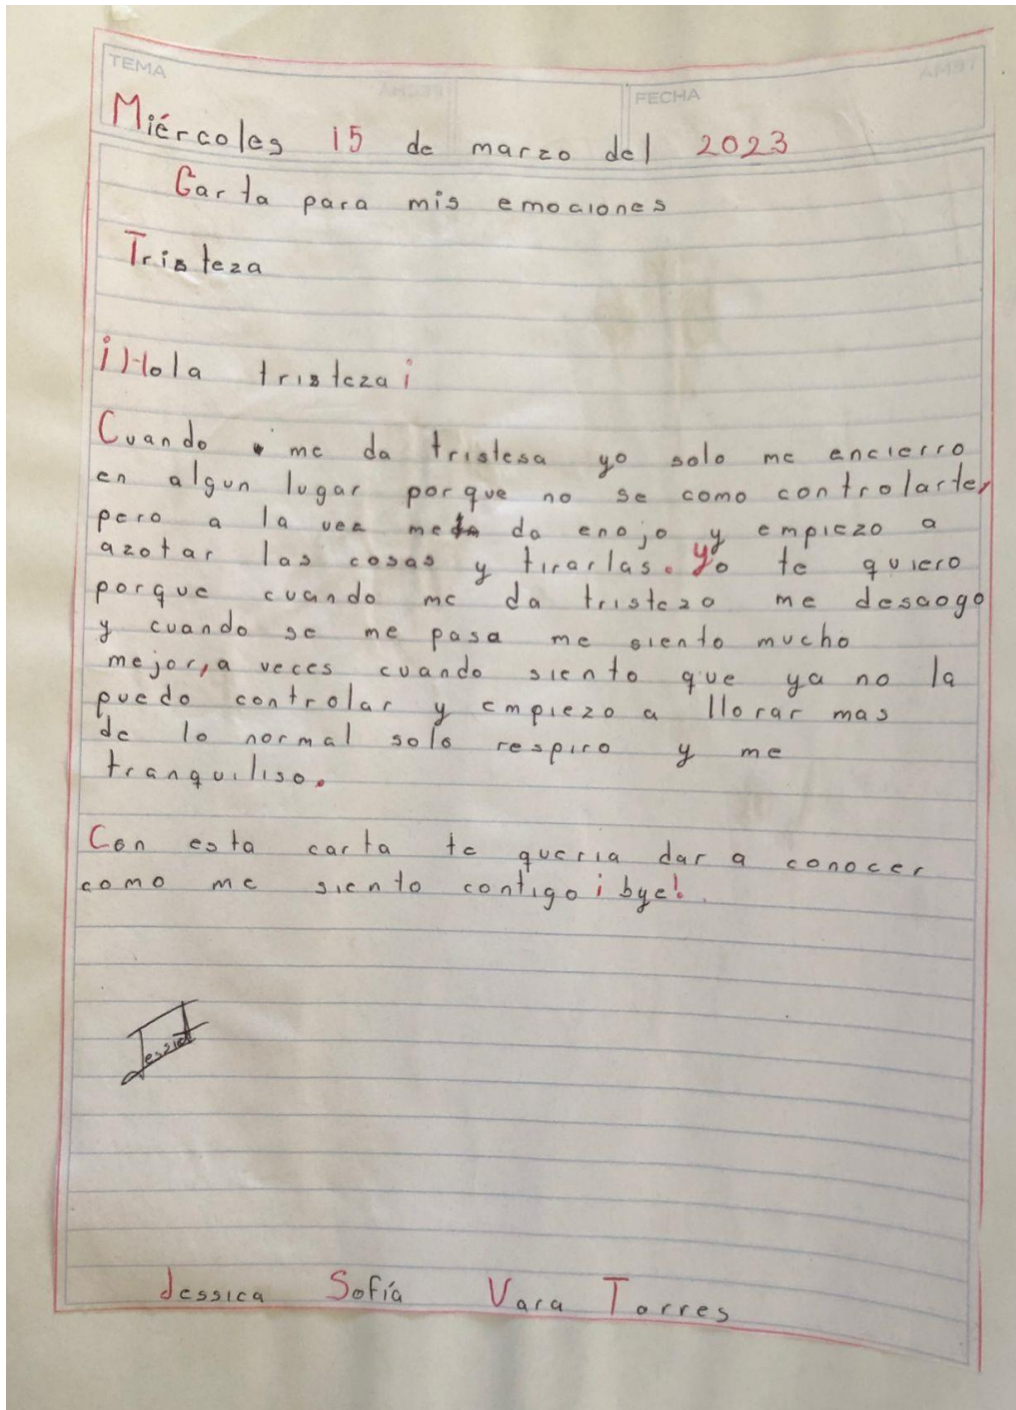 TEMA
FECHA
Miércoles 15 de marzo del 2023
Carta para mis emociones
Tristeza
¡Hola tristeza¡
Cuando me da tristesa yo solo me encierro
en algun lugar porque no se como controlarte,
pero a la vez me da enojo y empiezo a
azotar las cosas y tirarlas. Yo te quiero
porque cuando me da tristeza me desaogo
y cuando se me pasa me siento mucho
mejor, a veces cuando siento que ya no la
puedo controlar y empiezo a llorar mas
de lo normal solo respiro y me
tranquiliso.
Con esta carta te queria dar a conocer
como me siento contigo ¡bye!.
Jessica Sofía Vara Torres